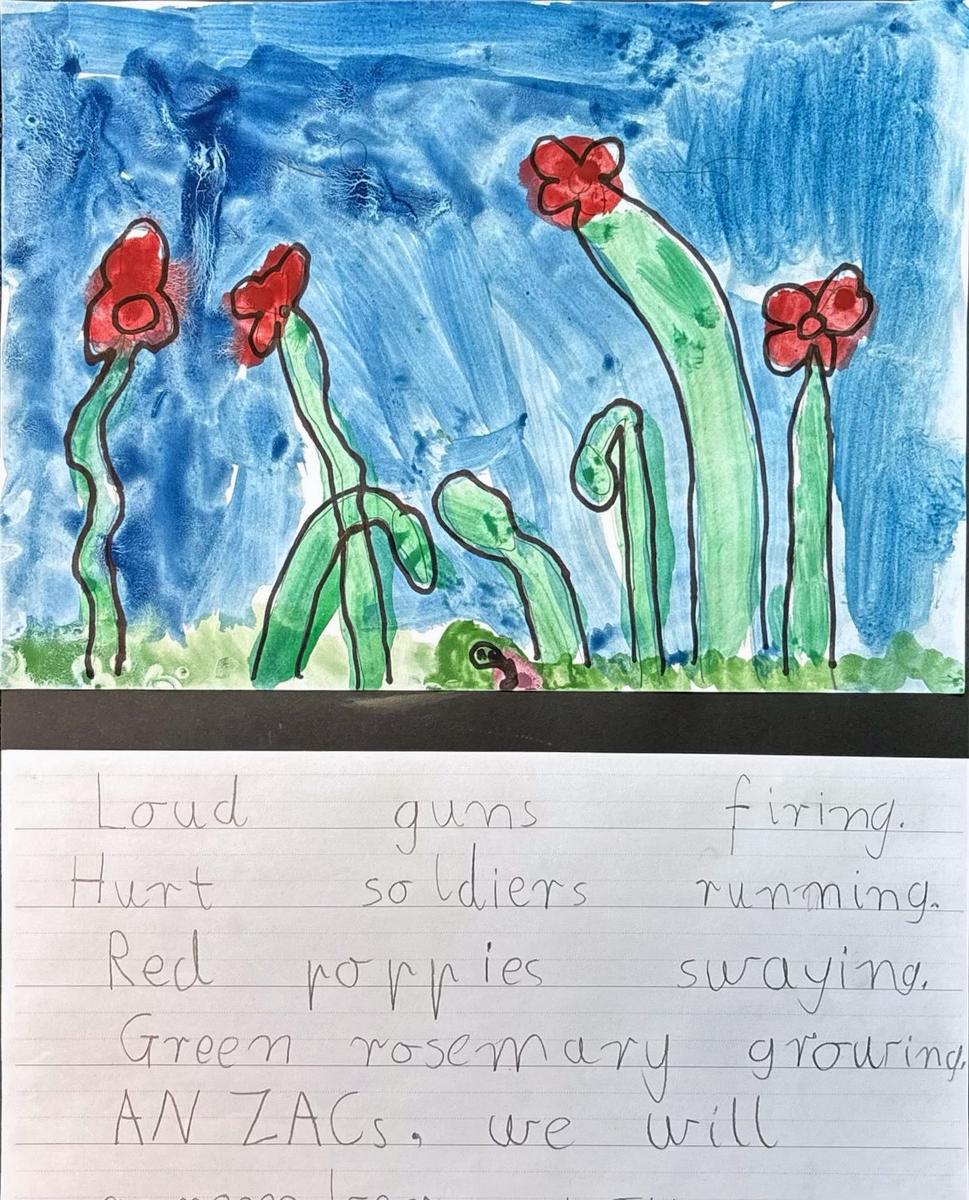 Loud guns firing.
Hurt soldiers running.
Red poppies swaying.
Green rosemary growing.
ANZACs, we will